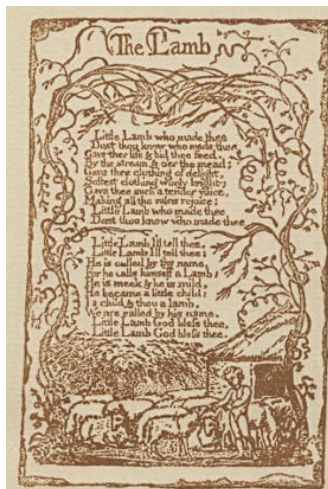 The Lamb
Little Lamb who made thee
Dost thou know who made thee
Gave thee life & bid thee feed,
By the stream & o'er the mead;
Gave thee clothing of delight,
Softest clothing wooly bright;
Gave thee such a tender voice,
Making all the vales rejoice:
Little Lamb who made thee
Dost thou know who made thee
Little Lamb I'll tell thee,
Little Lamb I'll tell thee;
He is called by thy name,
For he calls himself a Lamb:
He is meek & he is mild,
He became a little child:
I a child & thou a lamb,
We are called by his name.
Little Lamb God bless thee.
Little Lamb God bless thee.